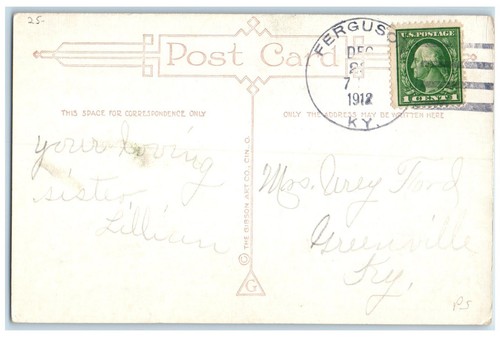 25-
Post Card
FERGUSO
DEC
21
7
1912
KY.
U.S. POSTAGE
1 CENT 1
THIS SPACE FOR CORRESPONDENCE ONLY
ONLY THE ADDRESS MAY BE WRITTEN HERE
your loving
sister,
Lillian
© THE GIBSON ART CO., CIN., O.
G
Mrs. Urey Ford
Greenville
Ky.
P5